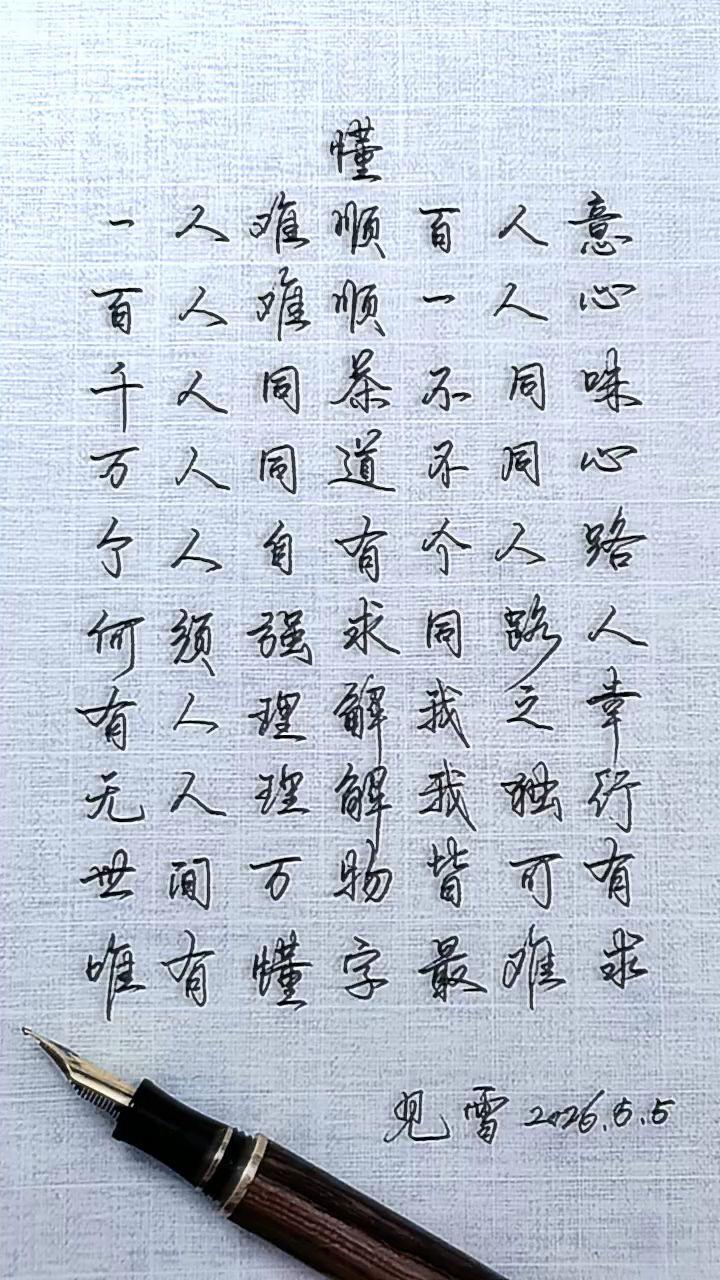 懂
一人难顺百人意
百人难顺一人心
千人同茶不同味
万人同道不同心
个人自有个人路
何须强求同路人
有人理解我之幸
无人理解我独行
世间万物皆可有
唯有懂字最难求
见雪 2026.5.5